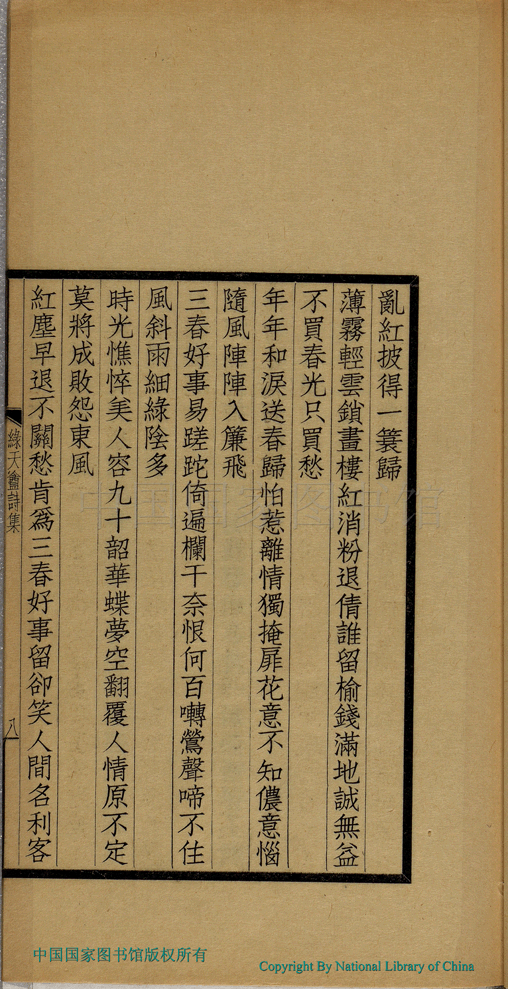 亂紅披得一蓑歸
薄霧輕雲鎖畫樓紅消粉退倩誰留榆錢滿地誠無益
不買春光只買愁
年年和淚送春歸怕惹離情獨掩扉花意不知儂意惱
隨風陣陣入簾飛
三春好事易蹉跎倚遍欄干奈恨何百囀鶯聲啼不住
風斜雨細綠陰多
時光憔悴美人容九十韶華蝶夢空翻覆人情原不定
莫將成敗怨東風
紅塵早退不關愁肯爲三春好事留卻笑人間名利客
綠天簃詩集
八
中国国家图书馆
中国国家图书馆版权所有
Copyright By National Library of China